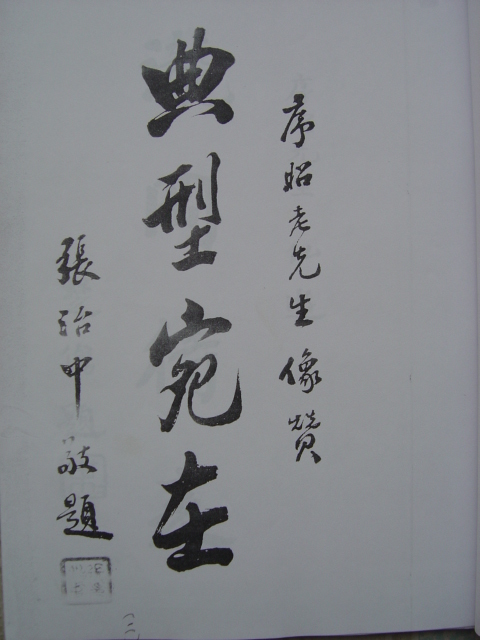 序昭老先生像贊
典型宛在
張治中敬題